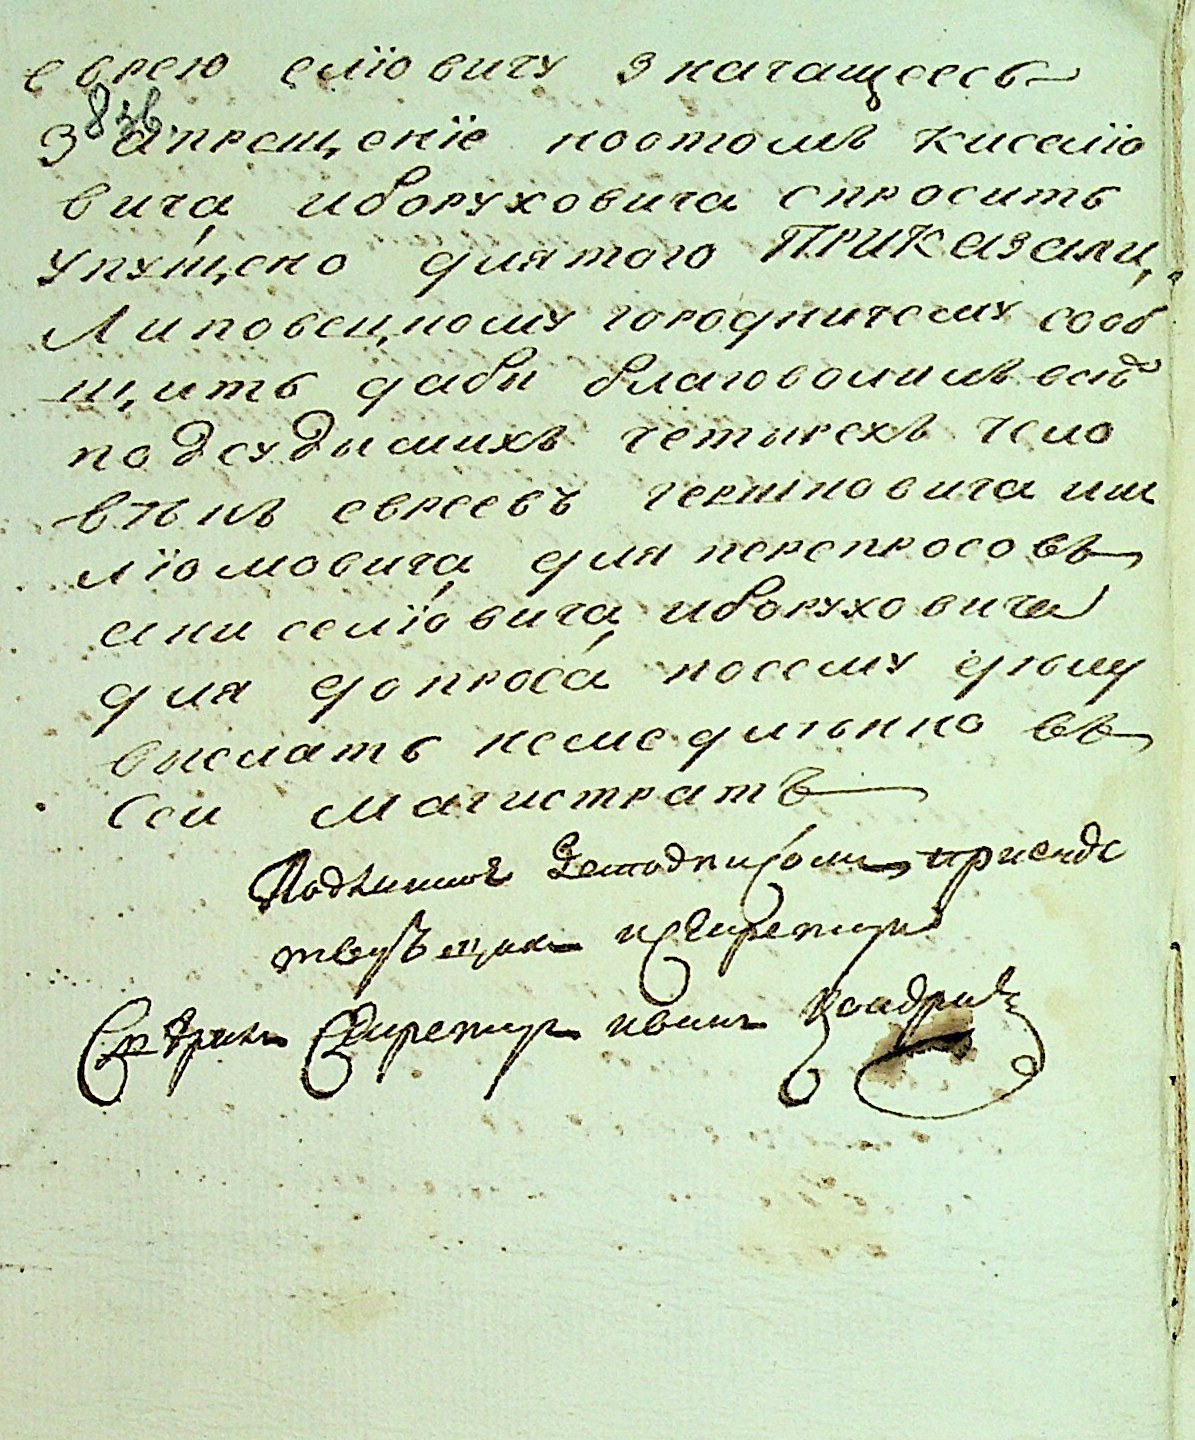 еврею елїовичу значащеесь
83 об.
запрещенїе поотомъ киселїо
вича иборуховича спросить
упущено длятого ПРИКАзали,
Липовецкому городничему сооб
щить дабы благоволилъ всѣхъ
подсудымихъ четырехъ чело
вѣкъ евреевъ гершковича ши
лїомовича, для перепросовъ
аки селїовича, иборуховича
для допроса посему делу
выслать немедлѣнно въ
сеи магистратъ
Подлинное Заподписомъ присудс
твующихъ исекретаря
Скрѣпилъ Секретарь иванъ